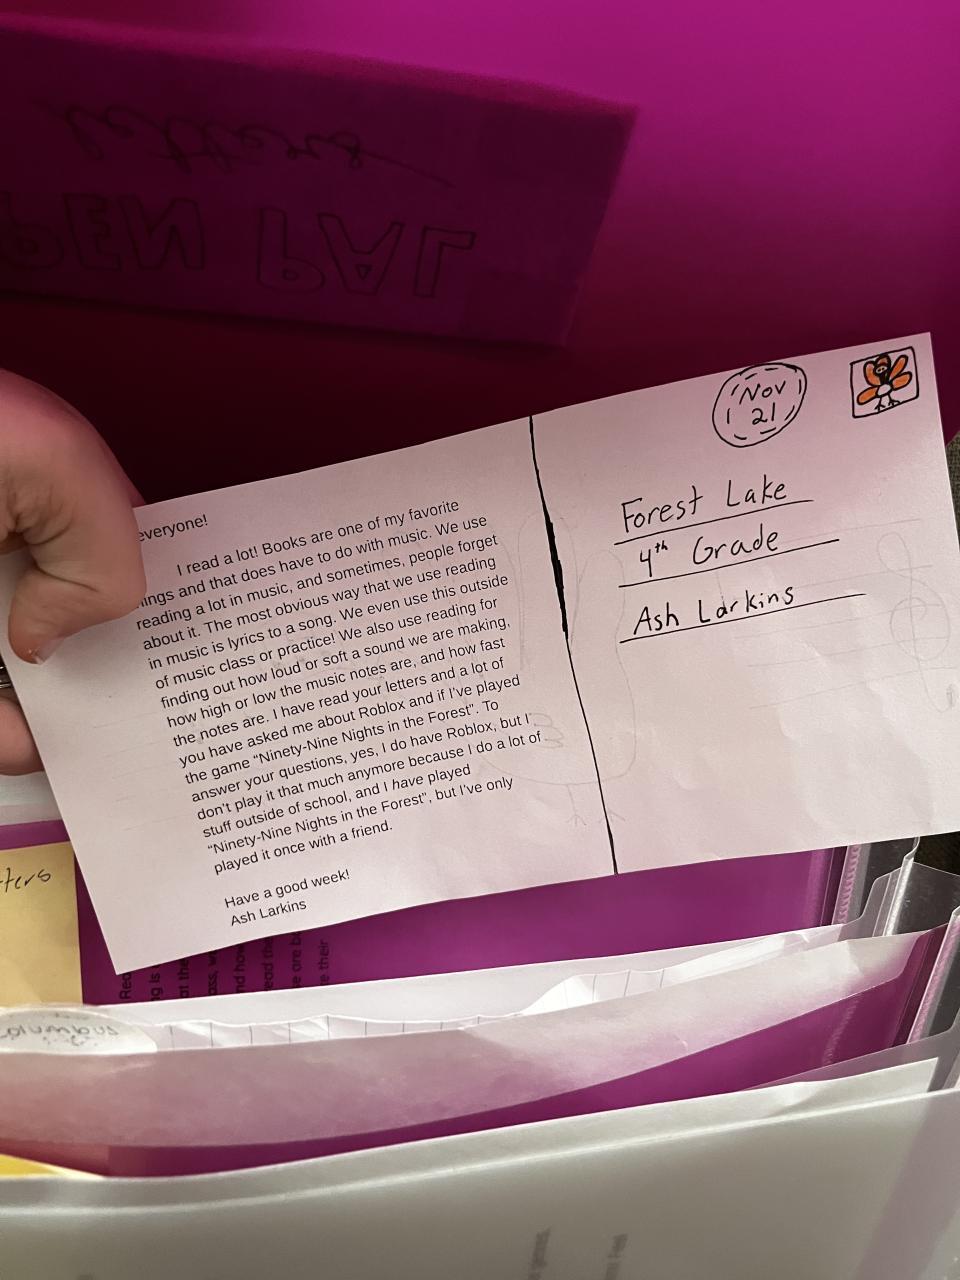 letters
PEN PAL
everyone!
I read a lot! Books are one of my favorite
and that does have to do with music. We use
reading a lot in music, and sometimes, people forget
about it. The most obvious way that we use reading
in music is lyrics to a song. We even use this outside
of music class or practice! We also use reading for
finding out how loud or soft a sound we are making,
how high or low the music notes are, and how fast
the notes are. I have read your letters and a lot of
you have asked me about Roblox and if I've played
the game “Ninety-Nine Nights in the Forest”. To
answer your questions, yes, I do have Roblox, but I
don't play it that much anymore because I do a lot of
stuff outside of school, and I have played
“Ninety-Nine Nights in the Forest”, but I've only
played it once with a friend.
Have a good week!
Ash Larkins
Nov
21
Forest Lake
4th Grade
Ash Larkins
Columbus